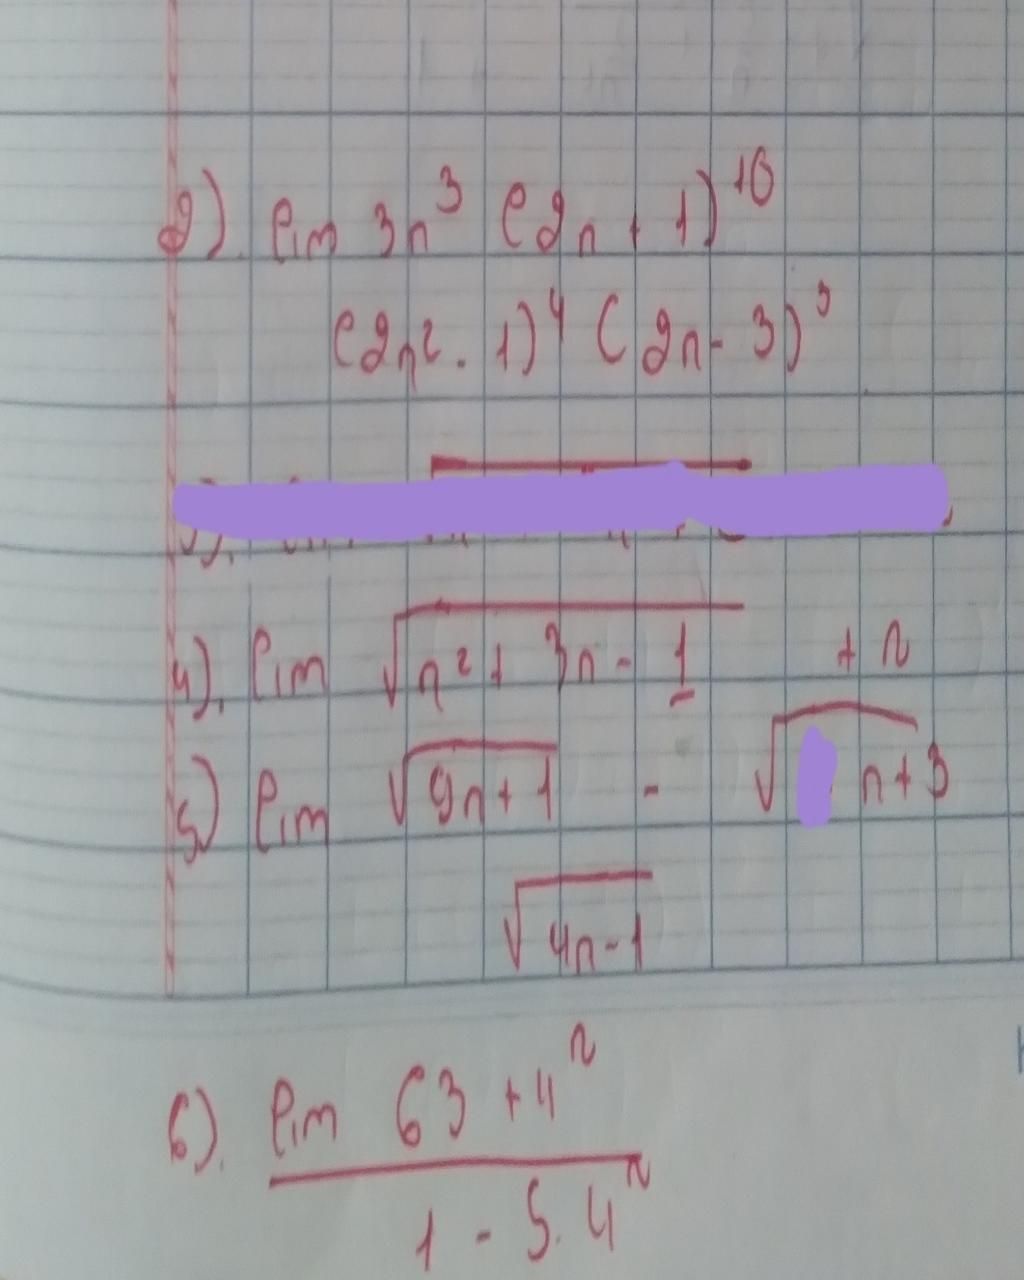 2). lim 3n³ (2n + 1)¹⁰
(2n² - 1)⁴ (2n - 3)³
4). lim √(n² + 3n - 1) + n
5) lim √(9n + 1) - √(n + 3)
√(4n - 1)
6). lim 63 + 4ⁿ
1 - 5.4ⁿ